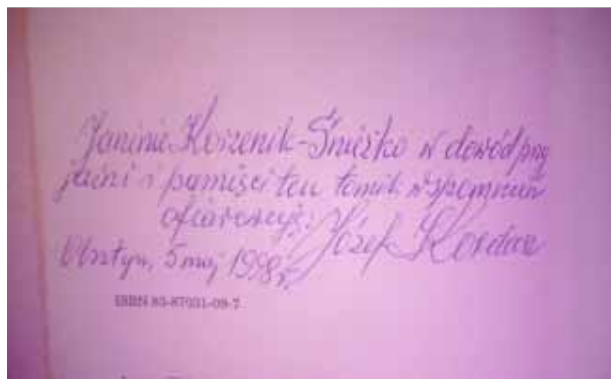 Janinie Korzenik-Śnieżko w dowód przy
jaźni i pamięci ten tomik wspomnień
ofiarowuję:
Józef
Olsztyn, 5 maj 1998 r.
ISBN 83-87031-09-7